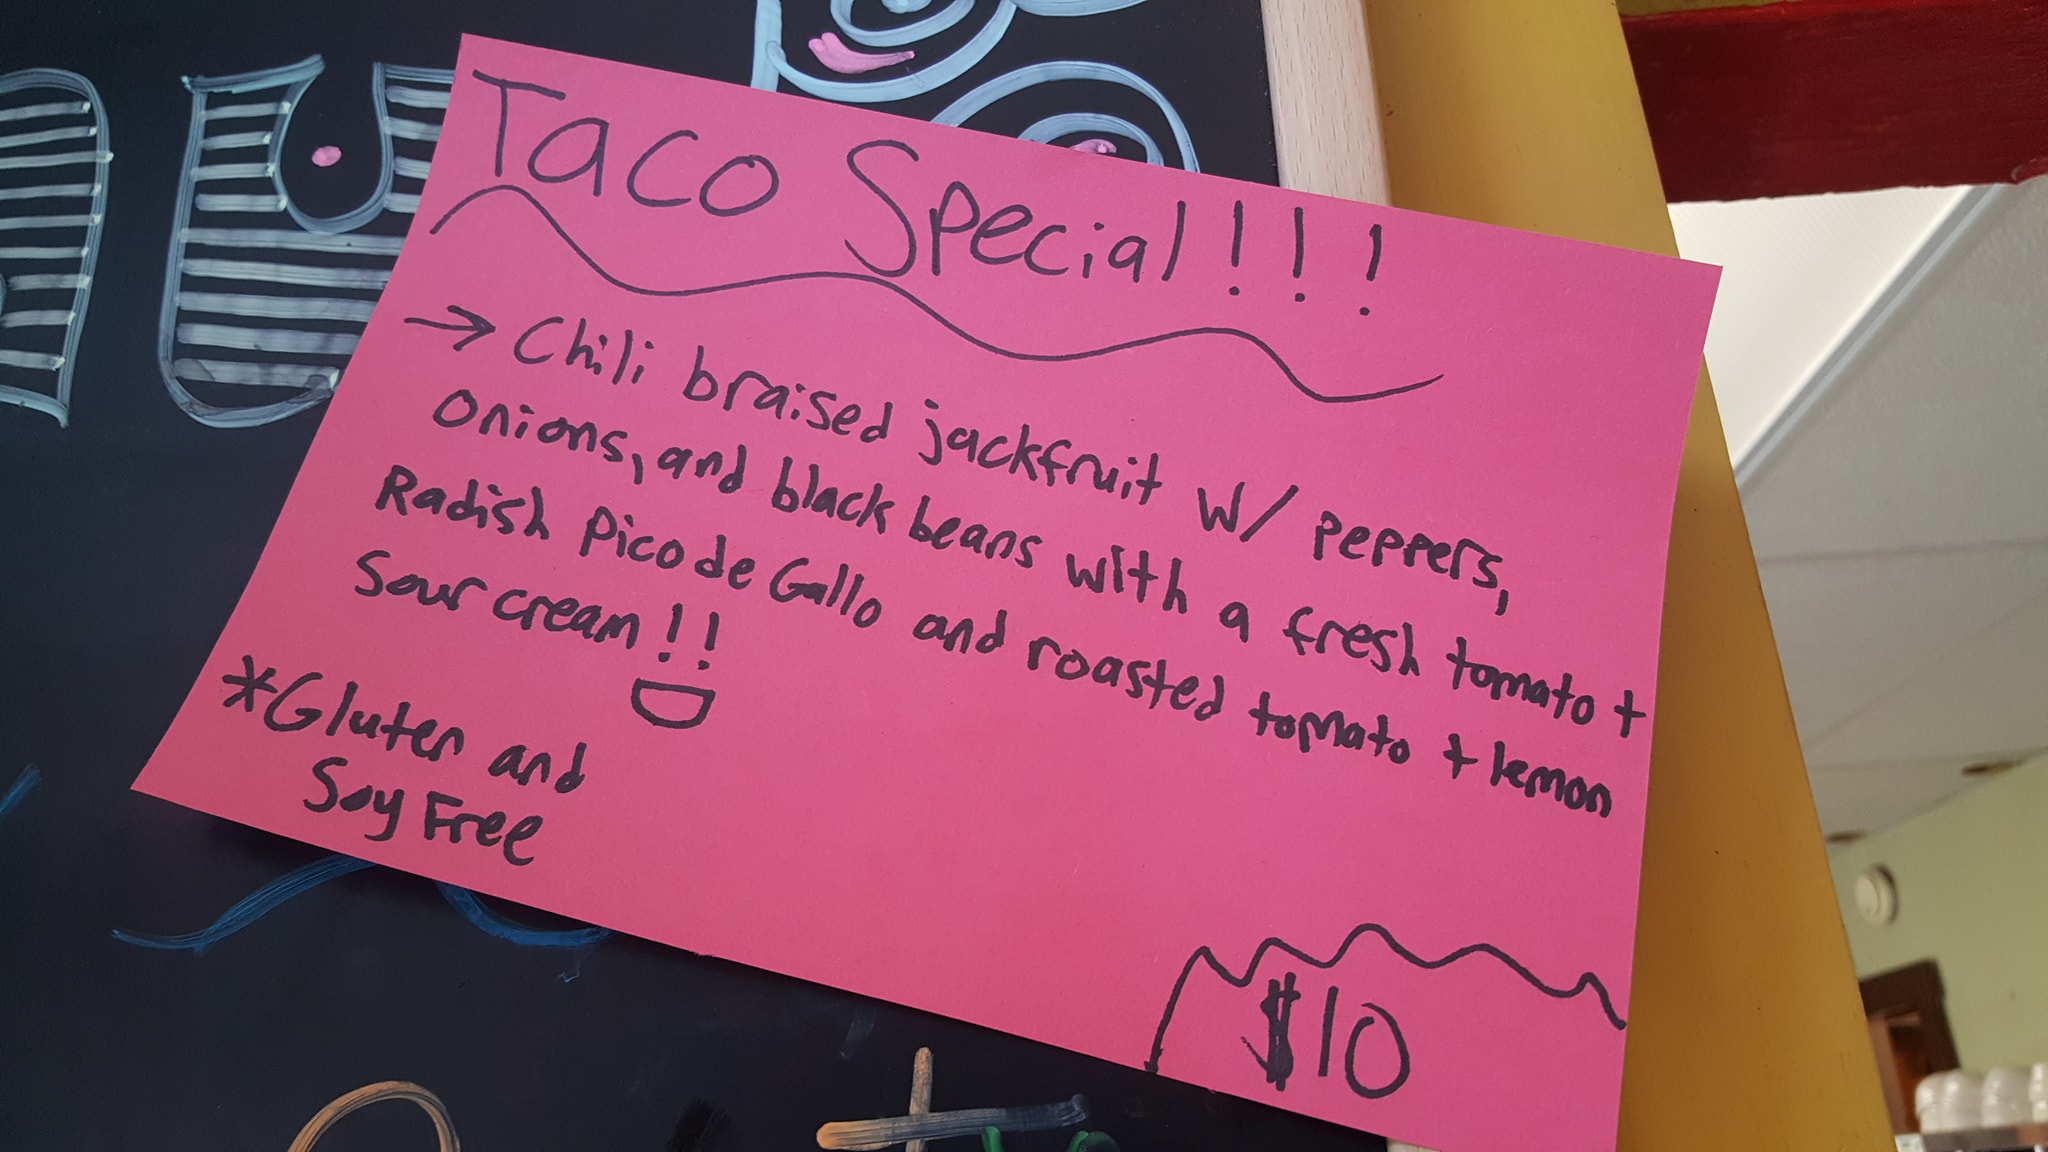 Taco Special!!!
→ Chili braised jackfruit w/ peppers,
onions, and black beans with a fresh tomato +
Radish Pico de Gallo and roasted tomato + lemon
Sour cream!!
*Gluten and
Soy Free
$10